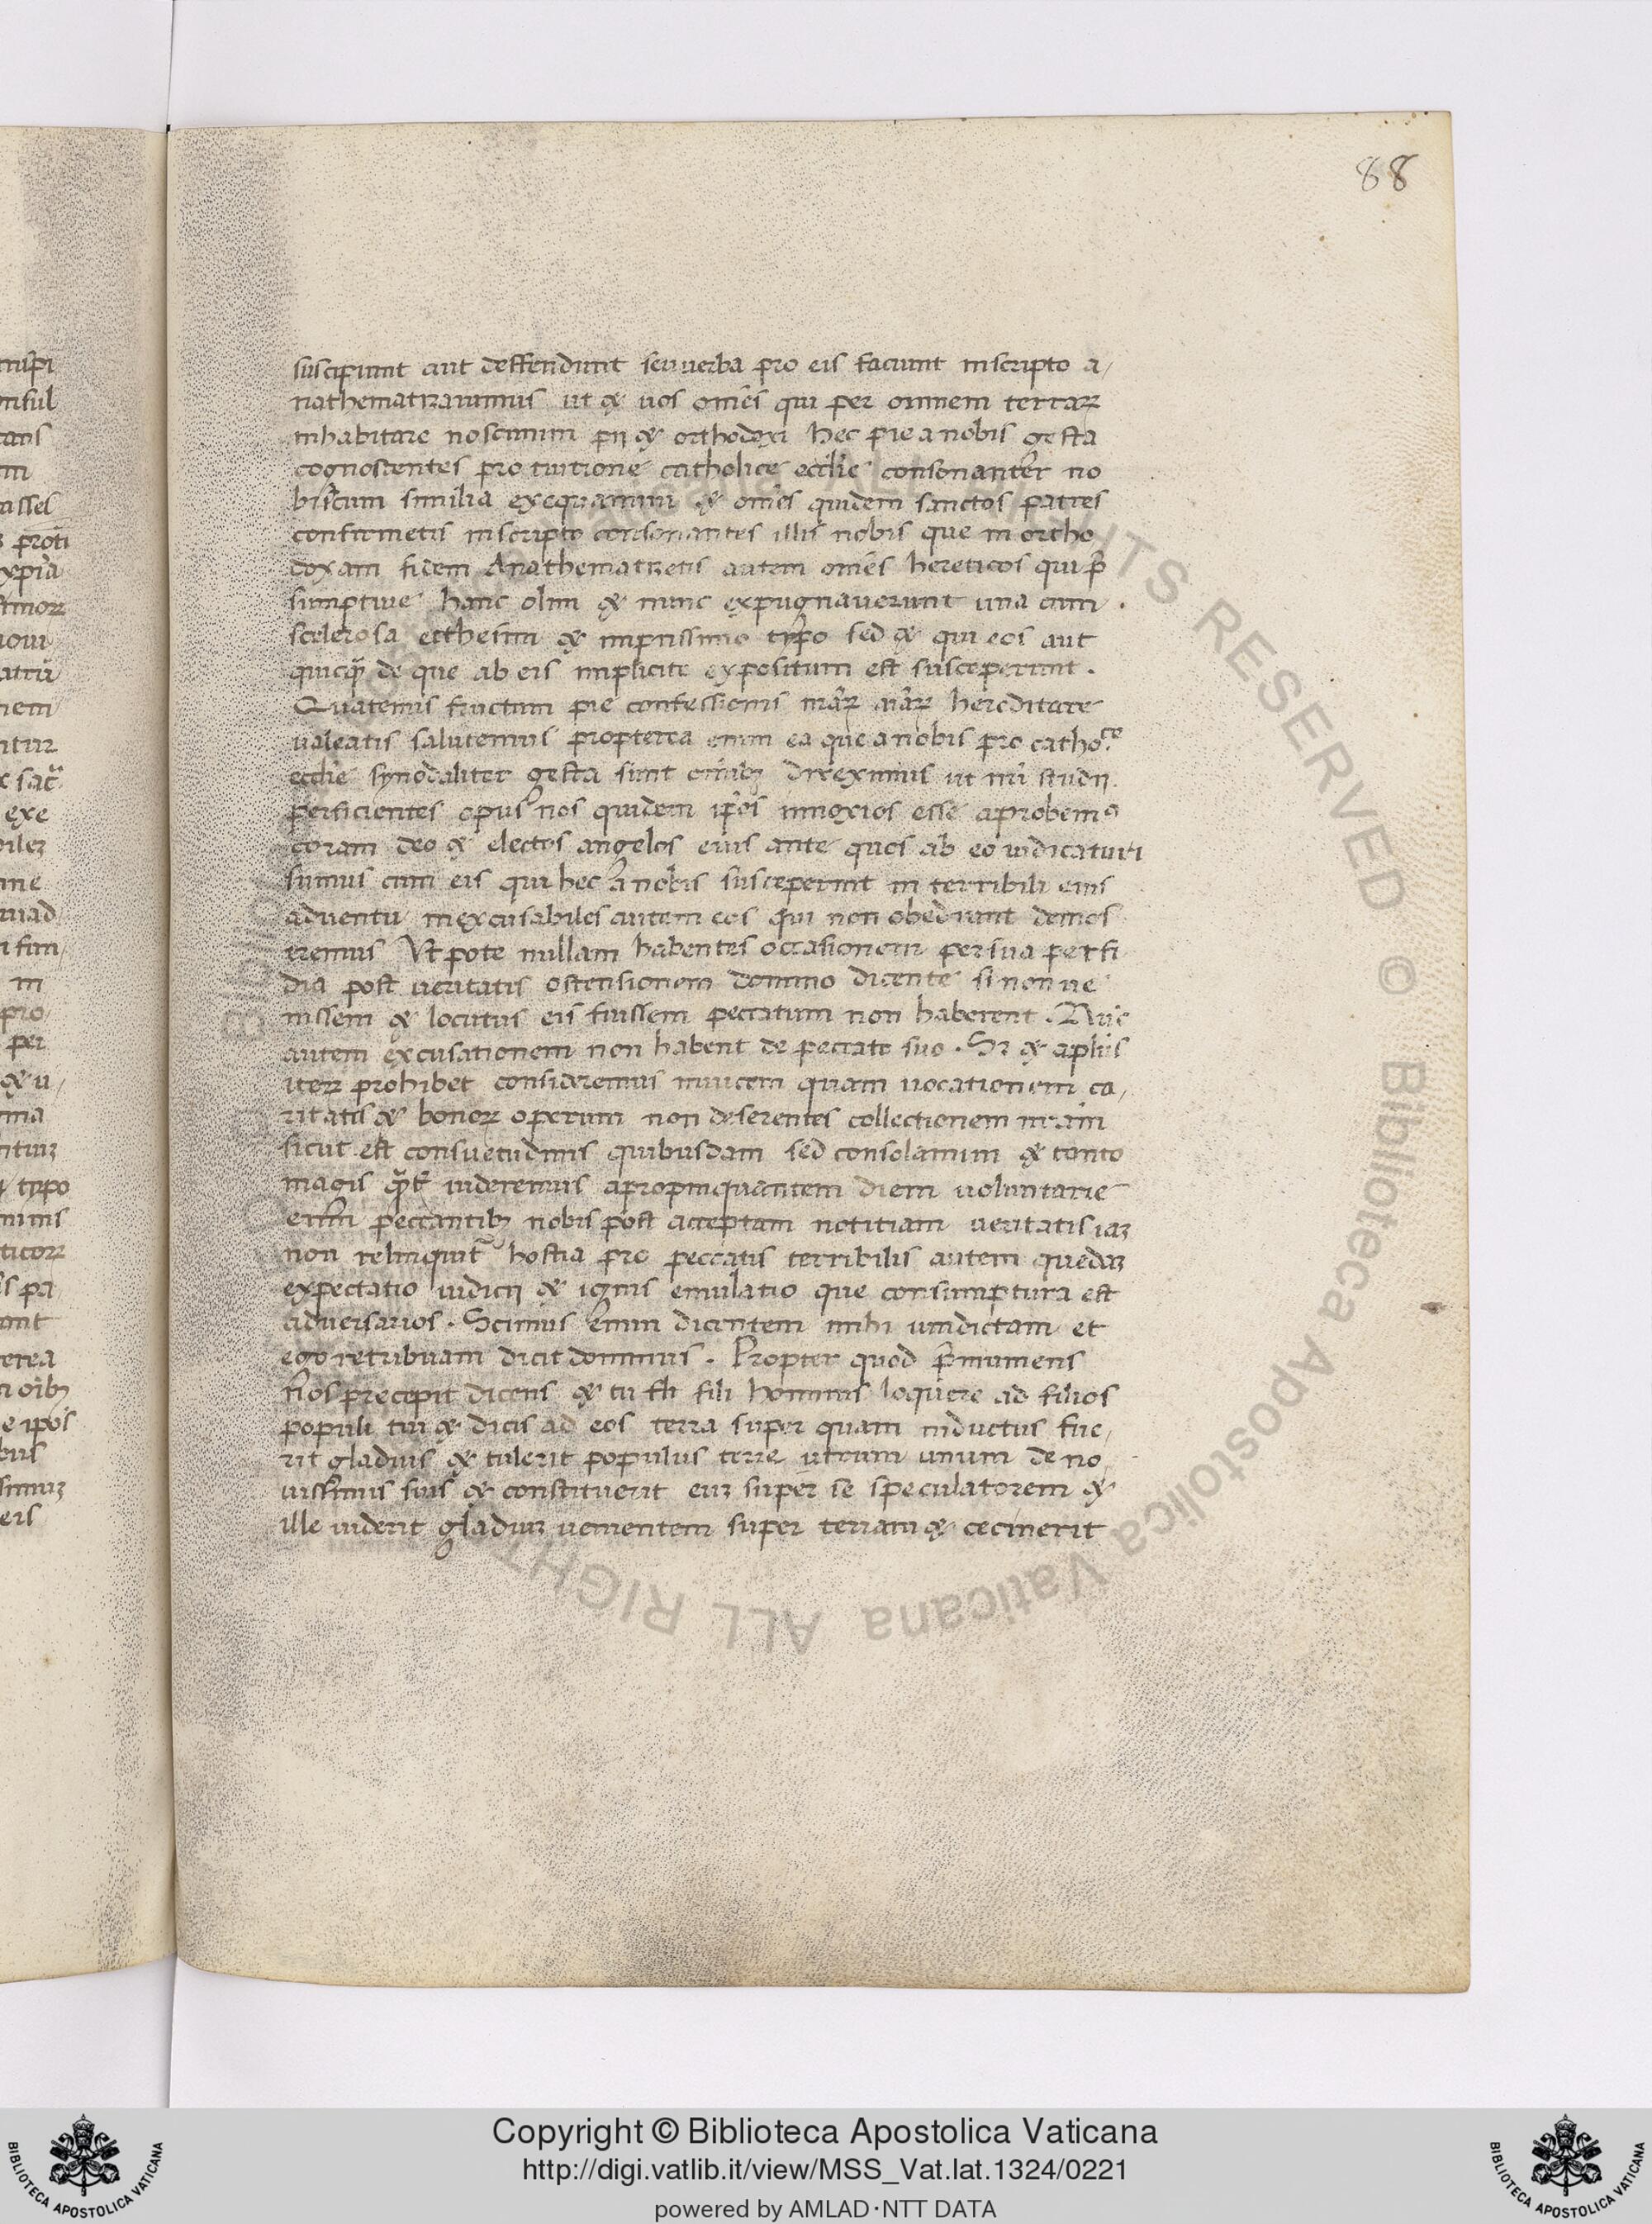 88
suscipiunt aut deffendunt seu verba pro eis faciunt inscripto a,
nathematizavimus ut & uos om̄es qui per omnem terraꝝ
inhabitare noscimini pij & orthodoxi hec pie a nobis gesta
cognoscentes pro tuitione catholice ecclīe consonanter no
biscum similia exequamini & om̄es quidem sanctos patres
confirmetis inscripto consonantes illis nobis que in ortho
doxam fidem Anathematizetis autem om̄es hereticos qui p̄
sumptive hanc olim & nunc expugnaverunt una cum .
scelerosa ecthesim & impiissimo typo sed & qui eos aut
quicq̄ de que ab eis implicite expositum est susceperunt .
Quatenus fructum pie confessionis nr̄aꝝ aīaꝝ hereditare
valeatis salutemus propterea enim ea que a nobis pro catho.ce
ecclīe synodaliter gesta sunt omībꝫ direximus ut nr̄i studij
perficientes opus nos quidem ip̄os innoxios esse aprobemꝰ
coram deo & electos angelos eius ante quos ab eo iudicaturi
sumus cum eis qui hec a nobis susceperint in terribili eius
adventu inexcusabiles autem eos qui non obediunt demos
tremus Ut pote nullam habentes occasionem per sua perfi
dia post veritatis ostensionem domino dicente si non ve
nissem & locutus eis fuissem peccatum non haberent . Nūc
autem excusationem non habent de peccato suo . Sꝫ & aplūs
iteꝝ prohibet consideremus invicem quam vocationem ca,
ritatis & bonoꝝ operum non deserentes collectionem nr̄am
sicut est consuetudinis quibusdam sed consolamini & tanto
magis videremus apropinquantem diem voluntarie
enim peccantibꝫ nobis post acceptam notitiam veritatis iaꝫ
non relinquit̄ hostia pro peccatis terribilis autem quedaꝫ
expectatio iudicij & ignis emulatio que consumptura est
adversarios . Scimus enim dicentem mihi vindictam et
ego retribuam dicit dominus . Propter quod p̄munens
nos precepit dicens & tu fli fili hominis loquere ad filios
populi tui & dicis ad eos terra super quam inductus fue,
rit gladius & tulerit populus terre utrum unum de no,
vissimis suis & constituerit euꝫ super se speculatorem &
ille viderit gladiuꝫ venientem super terram & cecinerit
Copyright © Biblioteca Apostolica Vaticana
http://digi.vatlib.it/view/MSS_Vat.lat.1324/0221
powered by AMLAD·NTT DATA